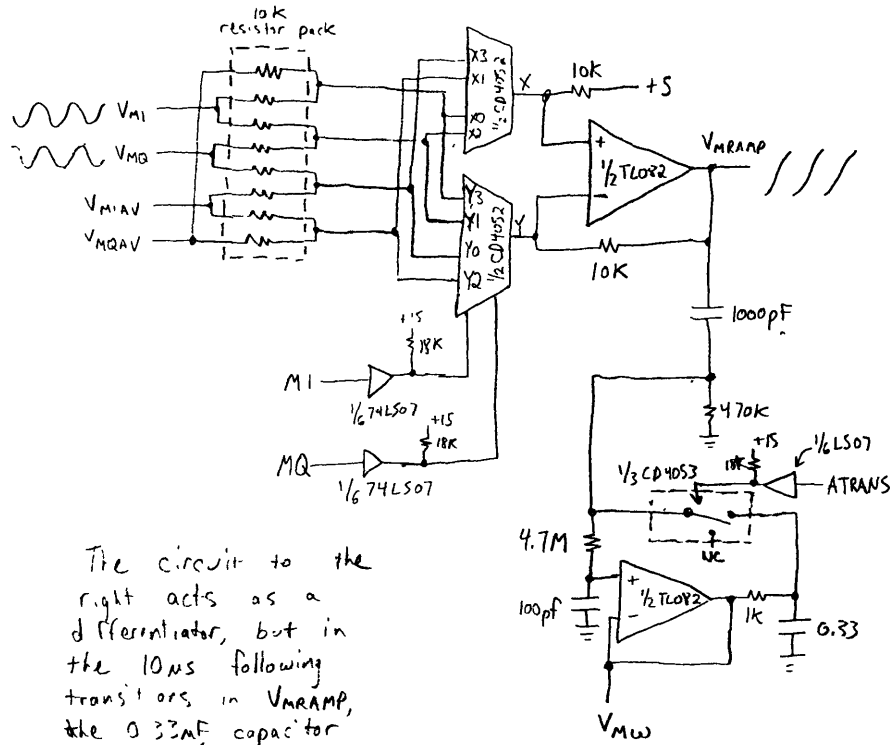 10K
resistor pack
VMI
VMQ
VMIAV
VMQAV
X3
X1
X0
X2
1/2 CD4052
X
10K
+5
+
-
1/2 TL082
VMRAMP
Y3
Y1
Y0
Y2
1/2 CD4052
Y
10K
1000pF
470K
+15
18K
MI
1/6 74LS07
+15
18K
MQ
1/6 74LS07
+15
18K
1/6 LS07
ATRANS
1/3 CD4053
NC
4.7M
100pf
+
-
1/2 TL082
1K
0.33
VMW
The circuit to the
right acts as a
differentiator, but in
the 10μs following
in VMRAMP,
the 0.33μF capacitor